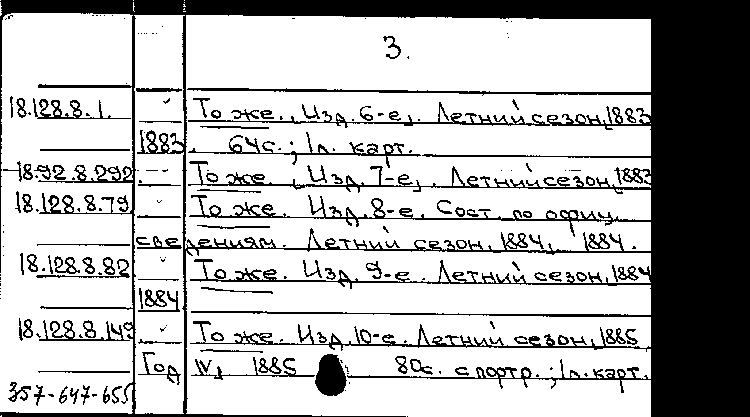 3.
18.128.8.1. То же. Изд. 6-е. Летний сезон, 1883
1883. 64с.; 1л. карт.
18.92.8.292 То же. Изд. 7-е. Летний сезон, 1883
18.128.8.79. То же. Изд. 8-е. Сост. по офиц.
сведениям. Летний сезон, 1884, 1884.
18.128.8.82 То же. Изд. 9-е. Летний сезон, 1884
1884
18.128.8.149 То же. Изд. 10-е. Летний сезон, 1885
Год IV, 1885 80с. с портр.; 1л. карт.
357-647-655